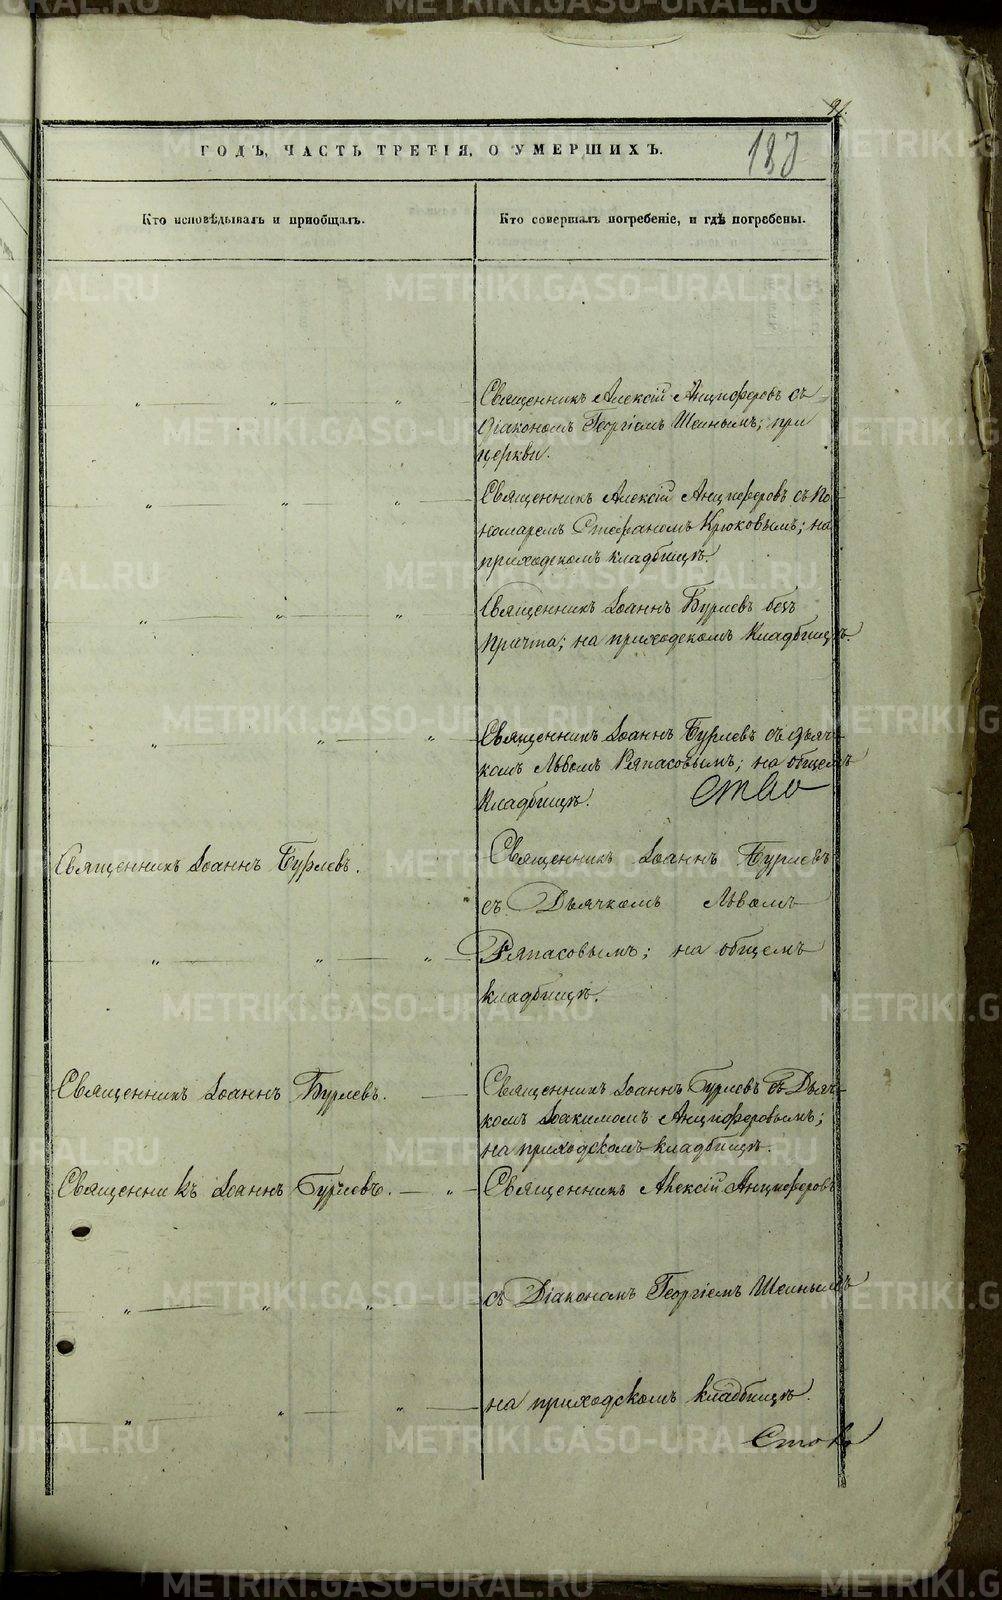 91.
187
ГОДЪ, ЧАСТЬ ТРЕТІЯ, О УМЕРШИХЪ.
Кто исповѣдывалъ и пріобщалъ.
Кто совершалъ погребеніе, и гдѣ погребены.
Священникъ Алексій Анциферовъ съ
Діакономъ Георгіемъ Шеинымъ; при
церкви.
Священникъ Алексій Анциферовъ съ По-
номаремъ Стефаномъ Крюковымъ; на
приходскомъ кладбищѣ.
Священникъ Іоаннъ Бурлевъ безъ
причта; на приходскомъ кладбищѣ.
Священникъ Іоаннъ Бурлевъ съ дьяч-
комъ Львомъ Ряпасовымъ; на общемъ
кладбищѣ.
Священникъ Іоаннъ Бурлевъ.
Священникъ Іоаннъ Бурлевъ
съ Дьячкомъ Львомъ
Ряпасовымъ; на общемъ
кладбищѣ.
Священникъ Іоаннъ Бурлевъ.
Священникъ Іоаннъ Бурлевъ съ Дьяч-
комъ Іоакимомъ Анциферовымъ;
на приходскомъ кладбищѣ.
Священникъ Іоаннъ Бурлевъ.
Священникъ Алексій Анциферовъ
съ Діакономъ Георгіемъ Шеинымъ
на приходскомъ кладбищѣ.
METRIKI.GASO-URAL.RU